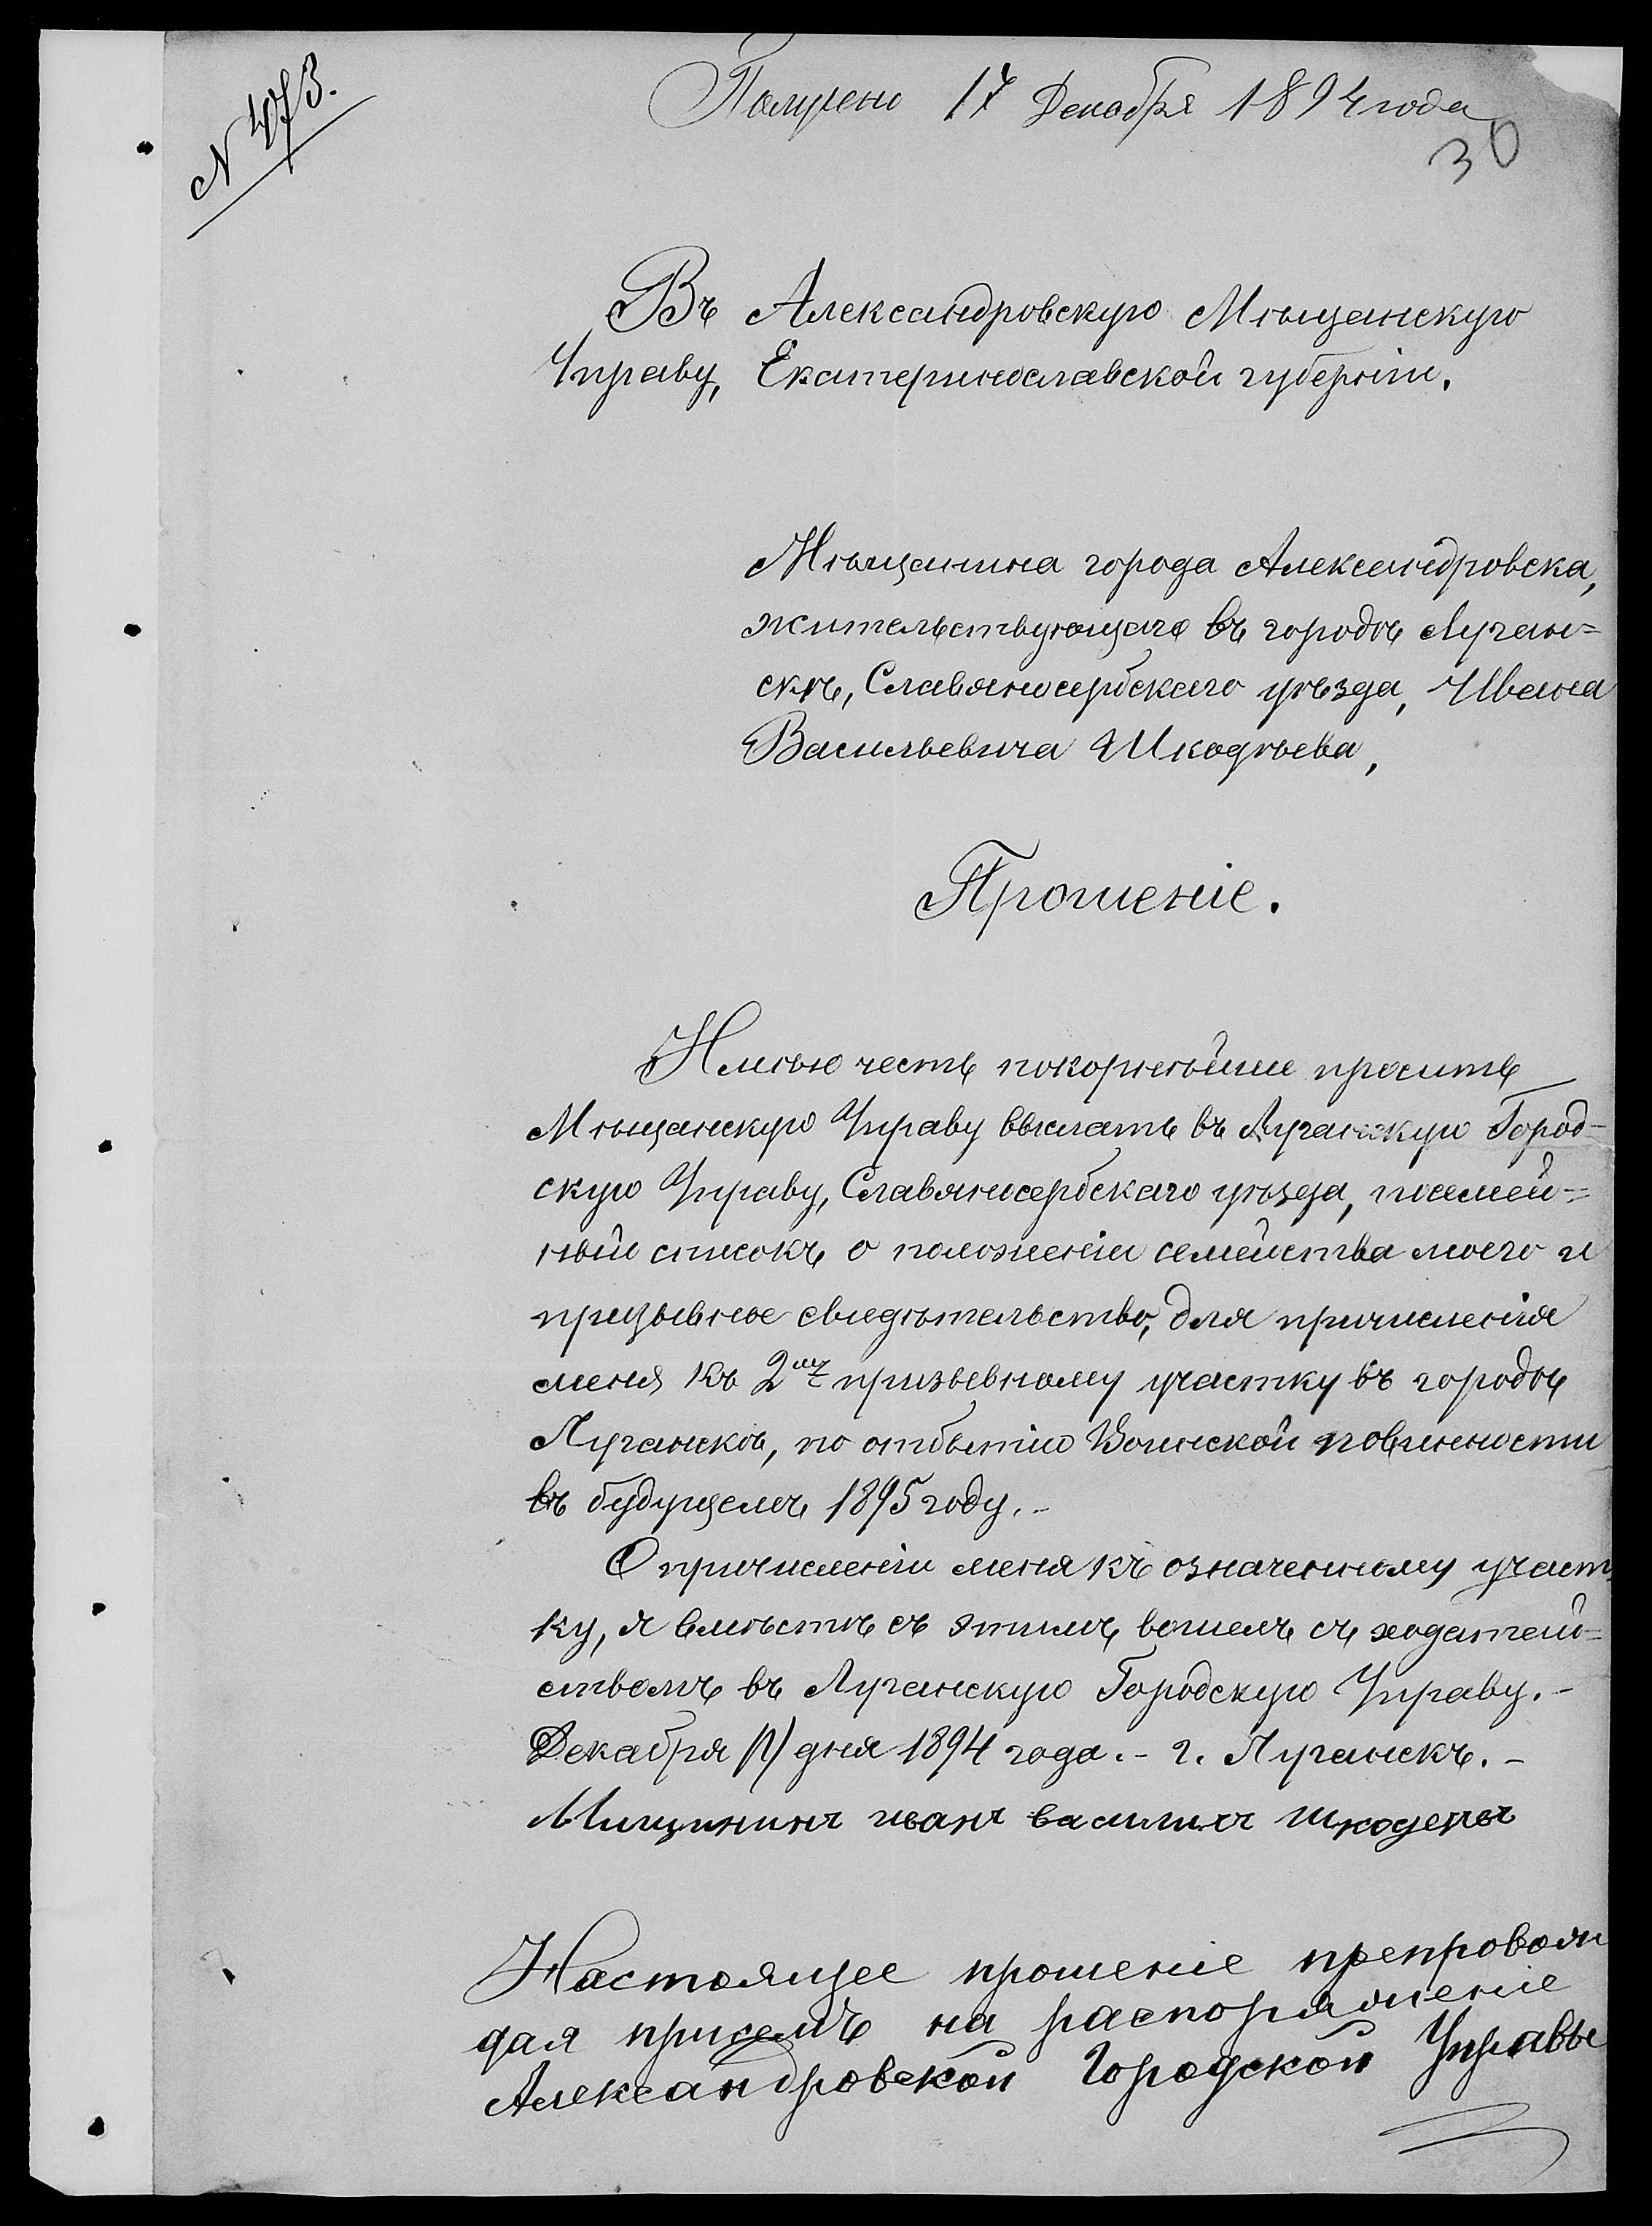 N 473.
Получено 17 Декабря 1894 года
30
Въ Александровскую Мѣщанскую
Управу, Екатеринославской губерніи.
Мѣщанина города Александровска,
жительствующаго въ городѣ Луган=
скѣ, Славяносербскаго уѣзда, Ивана
Васильевича Шкодѣева,
Прошеніе.
Имѣю честь покорнѣйше просить
Мѣщанскую Управу выслать въ Луганскую Город-
скую Управу, Славяносербскаго уѣзда, посемей=
ный списокъ о положеніи семейства моего и
призывное свидѣтельство, для причисленія
меня къ 2му призывному участку въ городѣ
Луганскѣ, по отбытію Воинской повинности
въ будущемъ 1895 году.-
О причисленіи меня къ означенному участ
ку, я вмѣстѣ съ этимъ вошелъ съ ходатай=
ствомъ въ Луганскую Городскую Управу.-
Декабря дня 1894 года.- г. Луганскъ.-
Мищининъ иванъ шкодевъ
Настоящее прошеніе препровож
дая присемъ на распоряженіе
Александровской Городской Управы